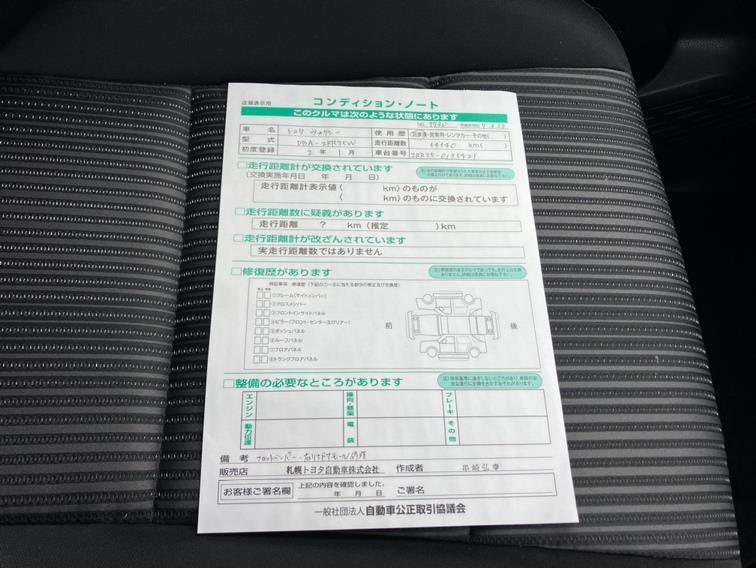 店頭表示用 コンディション・ノート
このクルマは次のような状態にあります
車名 トヨタ ヴォクシー 使用歴 自家用・営業用・レンタカー・その他( )
型式 DBA-ZRR85W 走行距離数 km
初度登録 2年 1月 車台番号
走行距離計が交換されています
(交換実施年月日 年 月 日)
走行距離計表示値( km)のものが
( km)のものに交換されています
走行距離数に疑義があります
走行距離 ? km(推定 )km
走行距離計が改ざんされています
実走行距離数ではありません
修復歴があります
特記事項 修復歴(下記の①~⑧に当たる部分の修正及び交換歴)
①フレーム(サイドメンバー)
②クロスメンバー
③フロントインサイドパネル
④ピラー(フロント・センター及びリアー)
⑤ダッシュパネル
⑥ルーフパネル
⑦フロアパネル
⑧トランクフロアパネル
前 後
整備の必要なところがあります
エンジン 操向・懸架 ブレーキ
動力伝達 電装 その他
備考 フロントバンパー
販売店 札幌トヨタ自動車株式会社 作成者
お客様ご署名欄 上記の内容を確認しました。
年 月 日 ご署名
一般社団法人 自動車公正取引協議会